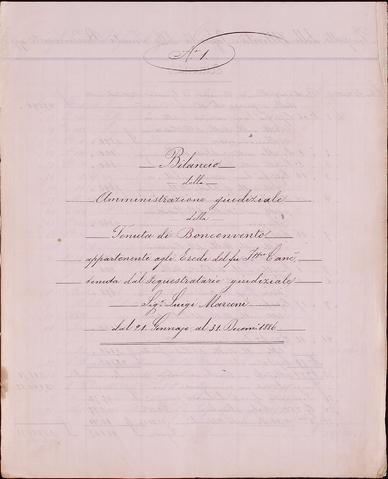 N° 1.
Bilancio
della
Amministrazione giudiziale
della
Tenuta di Bonconvento
appartenente agli Eredi del fu Ittre Canè,
tenuta dal sequestratario giudiziale
Sigr. Luigi Marconi
dal 21. Gennajo al 31. Decemi 1886